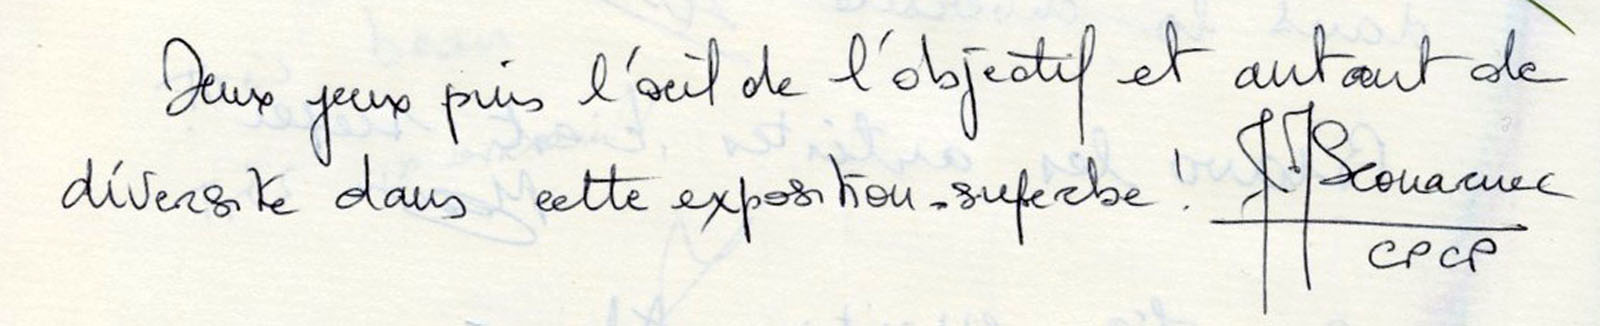 Deux yeux puis l'œil de l'objectif et autant de
diversité dans cette exposition superbe ! JJ Scouarnec
CPCP